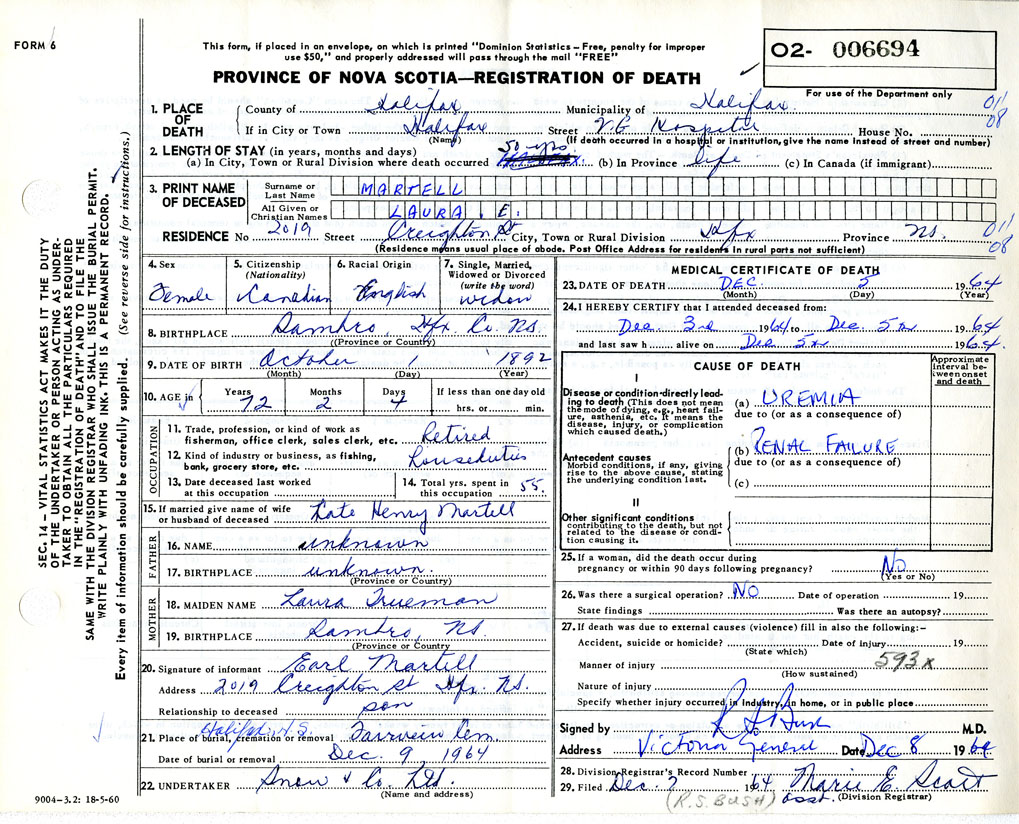 FORM 6
This form, if placed in an envelope, on which is printed "Dominion Statistics – Free, penalty for improper
use $50," and properly addressed will pass through the mail "FREE"
PROVINCE OF NOVA SCOTIA—REGISTRATION OF DEATH
O2- 006694
For use of the Department only
SEC. 14 – VITAL STATISTICS ACT MAKES IT THE DUTY
OF THE UNDERTAKER OR PERSON ACTING AS UNDER-
TAKER TO OBTAIN ALL THE PARTICULARS REQUIRED
IN THE "REGISTRATION OF DEATH" AND TO FILE THE
SAME WITH THE DIVISION REGISTRAR WHO SHALL ISSUE THE BURIAL PERMIT.
WRITE PLAINLY WITH UNFADING INK. THIS IS A PERMANENT RECORD.
Every item of information should be carefully supplied. (See reverse side for instructions.)
1. PLACE OF DEATH
County of Halifax Municipality of Halifax 011
If in City or Town Halifax Street V.G. Hospital House No. 08
(Name) (If death occurred in a hospital or institution, give the name instead of street and number)
2. LENGTH OF STAY (in years, months and days)
(a) In City, Town or Rural Division where death occurred 50 yrs (b) In Province life (c) In Canada (if immigrant)
3. PRINT NAME OF DECEASED
Surname or Last Name MARTELL
All Given or Christian Names LAURA. E.
RESIDENCE No 2019 Street Creighton St City, Town or Rural Division Hfx Province N.S. 011
(Residence means usual place of abode. Post Office Address for residents in rural parts not sufficient) 08
4. Sex Female
5. Citizenship (Nationality) Canadian
6. Racial Origin English
7. Single, Married, Widowed or Divorced (write the word) widow
8. BIRTHPLACE Sambro, Hfx Co. N.S.
(Province or Country)
9. DATE OF BIRTH October 1 1892
(Month) (Day) (Year)
10. AGE in Years 72 Months 2 Days 4 If less than one day old hrs. or min.
OCCUPATION
11. Trade, profession, or kind of work as
fisherman, office clerk, sales clerk, etc. Retired
12. Kind of industry or business, as fishing,
bank, grocery store, etc. Houseduties
13. Date deceased last worked
at this occupation
14. Total yrs. spent in
this occupation 55.
15. If married give name of wife
or husband of deceased Late Henry Martell
FATHER
16. NAME unknown
17. BIRTHPLACE unknown.
(Province or Country)
MOTHER
18. MAIDEN NAME Laura Trueman
19. BIRTHPLACE Sambro, N.S.
(Province or Country
20. Signature of informant Earl Martell
Address 2019 Creighton St Hfx. N.S.
Relationship to deceased son
Halifax, N.S.
21. Place of burial, cremation or removal Fairview Cem
Date of burial or removal Dec. 9 1964
22. UNDERTAKER Snow & Co. Ltd.
(Name and address)
9004-3.2: 18-5-60
MEDICAL CERTIFICATE OF DEATH
23. DATE OF DEATH DEC. 5 1964
(Month) (Day) (Year)
24. I HEREBY CERTIFY that I attended deceased from:
Dec. 3rd 1964 to Dec. 5th 1964
and last saw h alive on Dec 5th 1964.
CAUSE OF DEATH
Approximate interval between onset and death
I
Disease or condition directly lead-
ing to death (This does not mean
the mode of dying, e.g., heart fail-
ure, asthenia, etc. It means the
disease, injury, or complication
which caused death.)
(a) UREMIA
due to (or as a consequence of)
Antecedent causes
Morbid conditions, if any, giving
rise to the above cause, stating
the underlying condition last.
(b) RENAL FAILURE
due to (or as a consequence of)
(c)
II
Other significant conditions
contributing to the death, but not
related to the disease or condi-
tion causing it.
25. If a woman, did the death occur during
pregnancy or within 90 days following pregnancy? No
(Yes or No)
26. Was there a surgical operation? NO Date of operation 19
State findings Was there an autopsy?
27. If death was due to external causes (violence) fill in also the following:–
Accident, suicide or homicide? Date of injury 19
(State which)
593x
Manner of injury
(How sustained)
Nature of injury
Specify whether injury occurred in industry, in home, or in public place
Signed by R S Bush M.D.
Address Victoria General Date Dec 8 1964
28. Division Registrar's Record Number
29. Filed Dec. 1964 Marie E. Scott
(R.S. BUSH) asst. (Division Registrar)